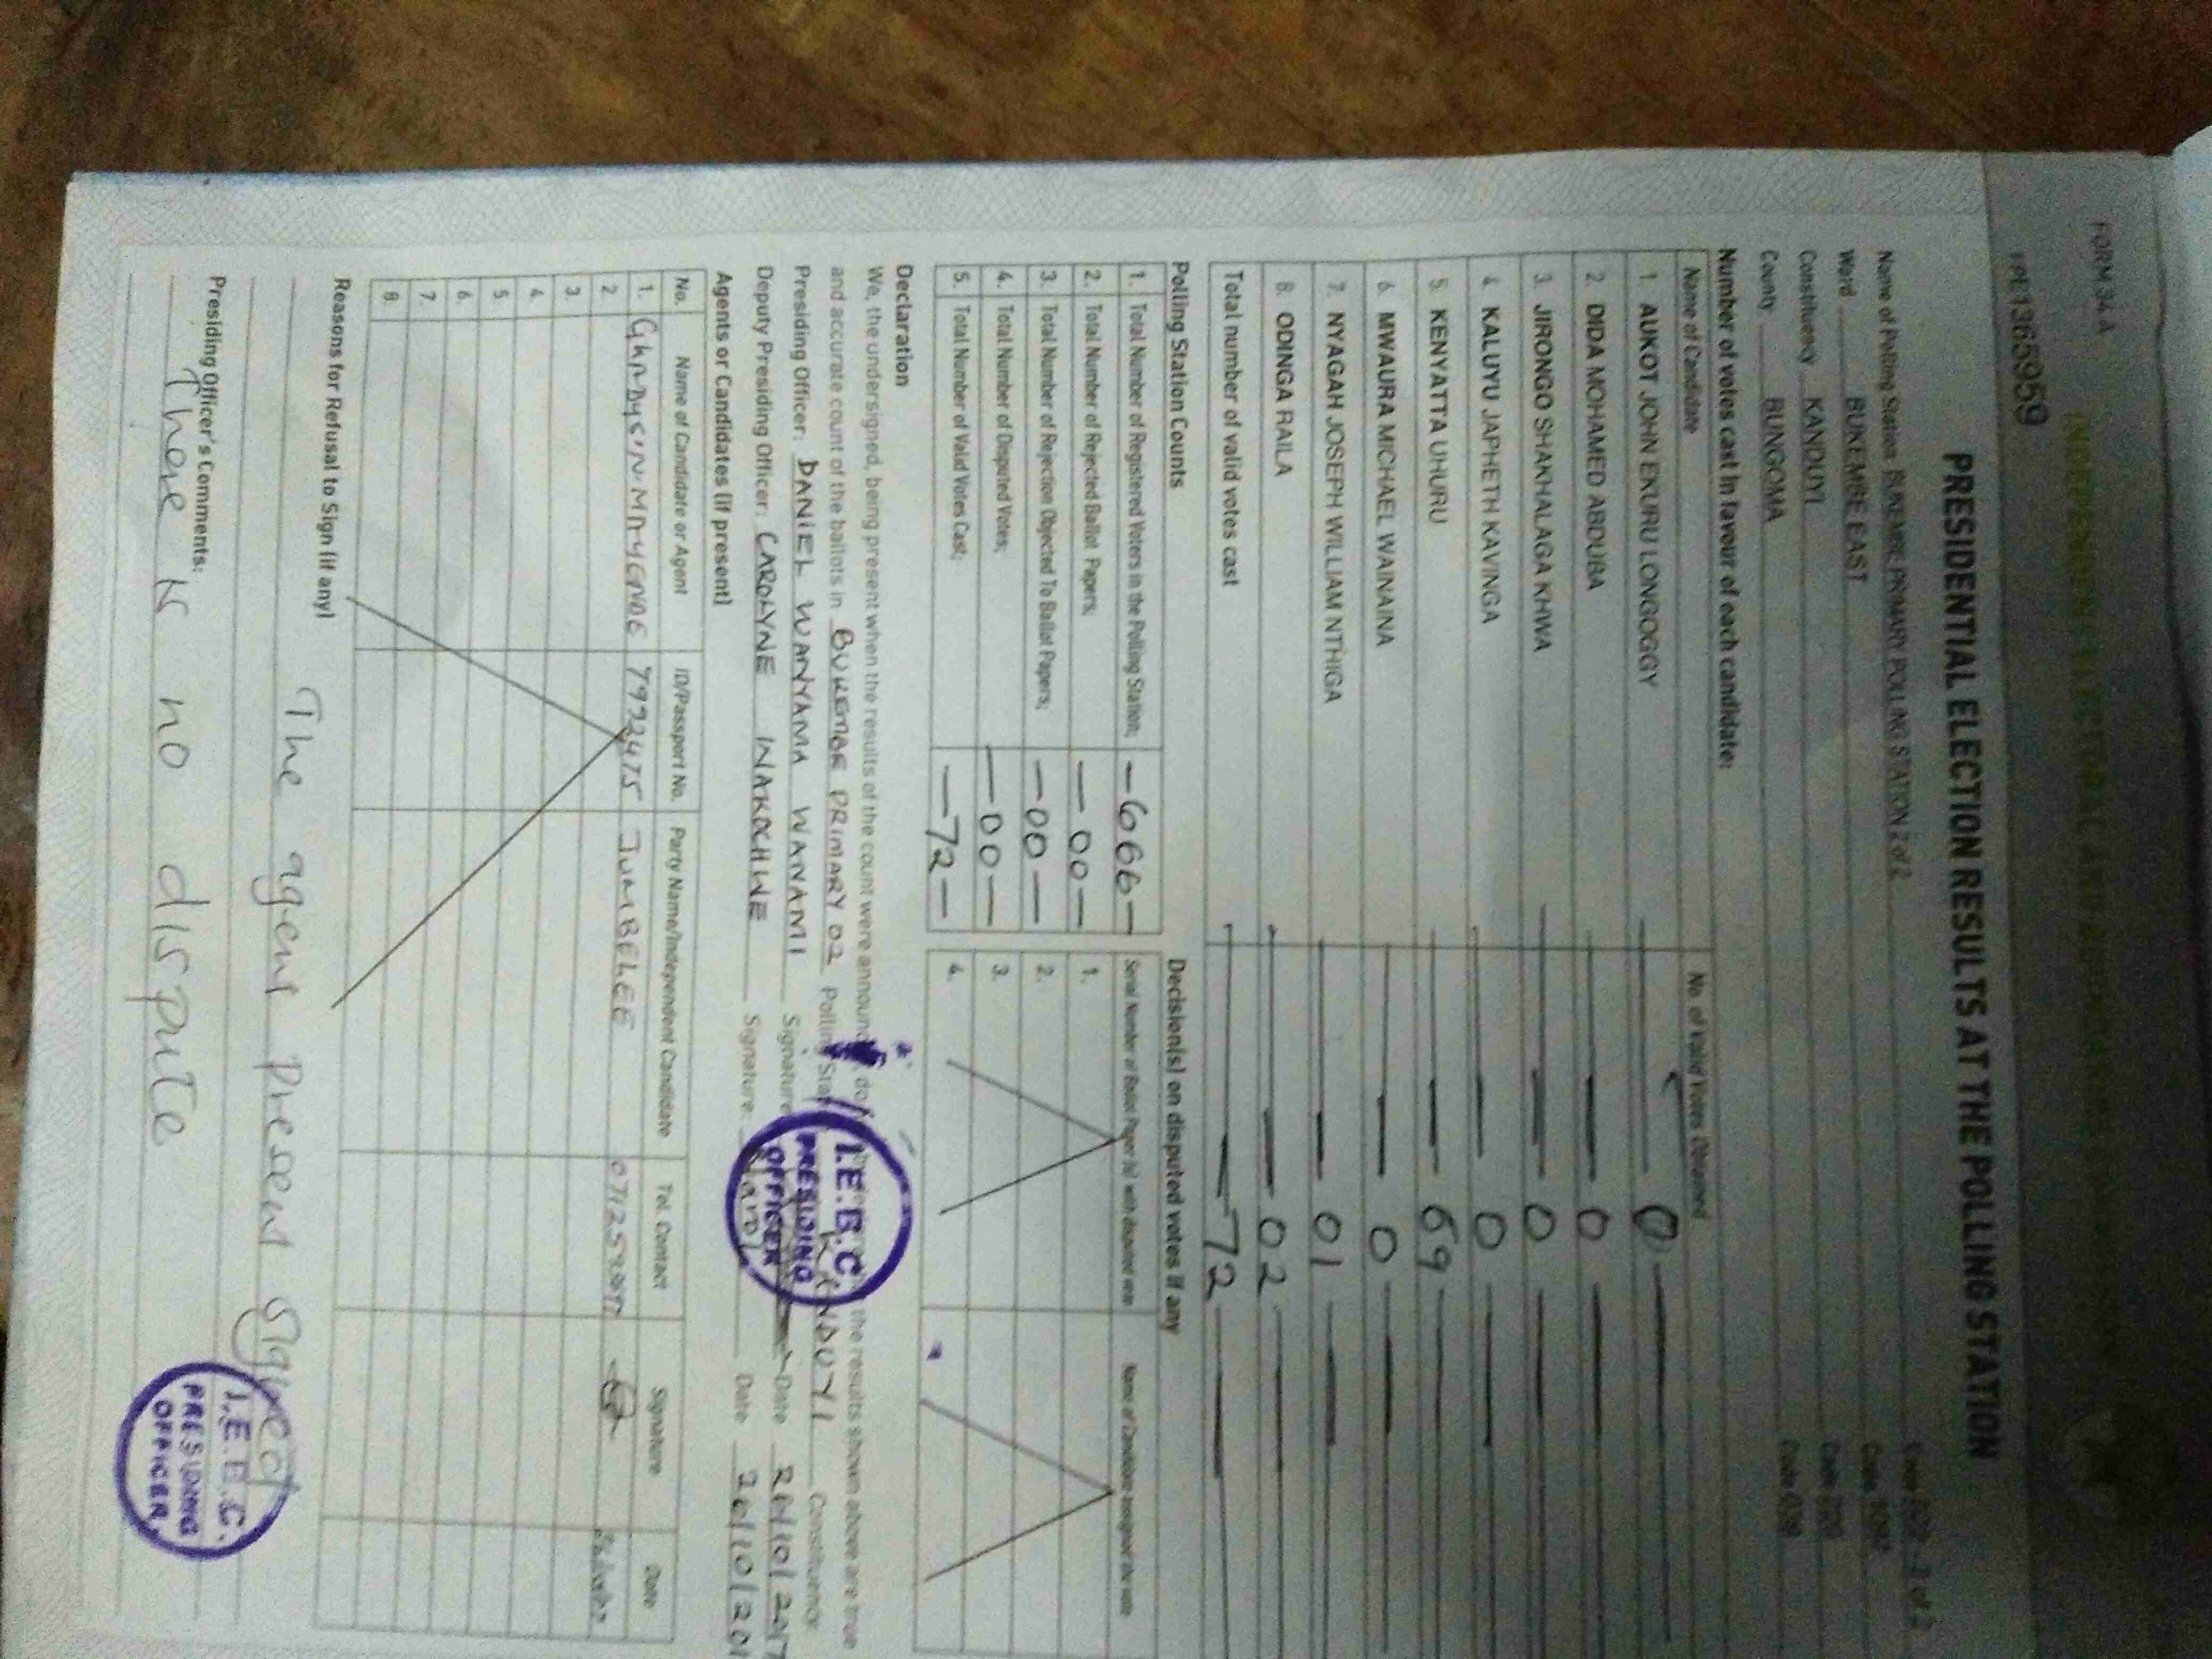 FORM 34 A
INDEPENDENT ELECTORAL AND
1365959
PRESIDENTIAL ELECTION RESULTS AT THE POLLING STATION
Name of Polling Station BUKEMBE PRIMARY POLLING STATION 2 of 2
Ward BUKEMBE EAST Code
Constituency KANDUYI Code
County BUNGOMA Code 039
Number of votes cast in favour of each candidate:
Name of Candidate No. of Valid Votes Obtained
1. AUKOT JOHN EKURU LONGOGGY 0
2. DIDA MOHAMED ABDUBA 0
3. JIRONGO SHAKHALAGA KHWA 0
4. KALUYU JAPHETH KAVINGA 0
5. KENYATTA UHURU 69
6. MWAURA MICHAEL WAINAINA 0
7. NYAGAH JOSEPH WILLIAM NTHIGA 01
8. ODINGA RAILA 02
Total number of valid votes cast 72
Polling Station Counts Decision(s) on disputed votes if any
1. Total Number of Registered Voters in the Polling Station; -666- Serial Number of Ballot Paper(s) with disputed vote Name of Candidate assigned the vote
2. Total Number of Rejected Ballot Papers; -00- 1.
3. Total Number of Rejection Objected To Ballot Papers; -00- 2.
4. Total Number of Disputed Votes; -00- 3.
5. Total Number of Valid Votes Cast; -72- 4.
Declaration
We, the undersigned, being present when the results of the count were announced, do the results shown above are true
and accurate count of the ballots in BUKEMBE PRIMARY 02 Polling Station KANDUYI Constituency
Presiding Officer: DANIEL WANYAMA WANAMI Signature Date 26/10/2017
Deputy Presiding Officer: CAROLYNE INAKOCHWE Signature: Date 26/10/201
I.E.B.C
PRESIDING
OFFICER
Agents or Candidates (if present)
No. Name of Candidate or Agent ID/Passport No. Party Name/Independent Candidate Tel. Contact Signature Date
1. 7992475 JUMBELEE
2.
3.
4.
5.
6.
7.
8.
Reasons for Refusal to Sign (if any)
The agent present signed
Presiding Officer's Comments:
There is no dispute
I.E.B.C.
PRESIDING
OFFICER